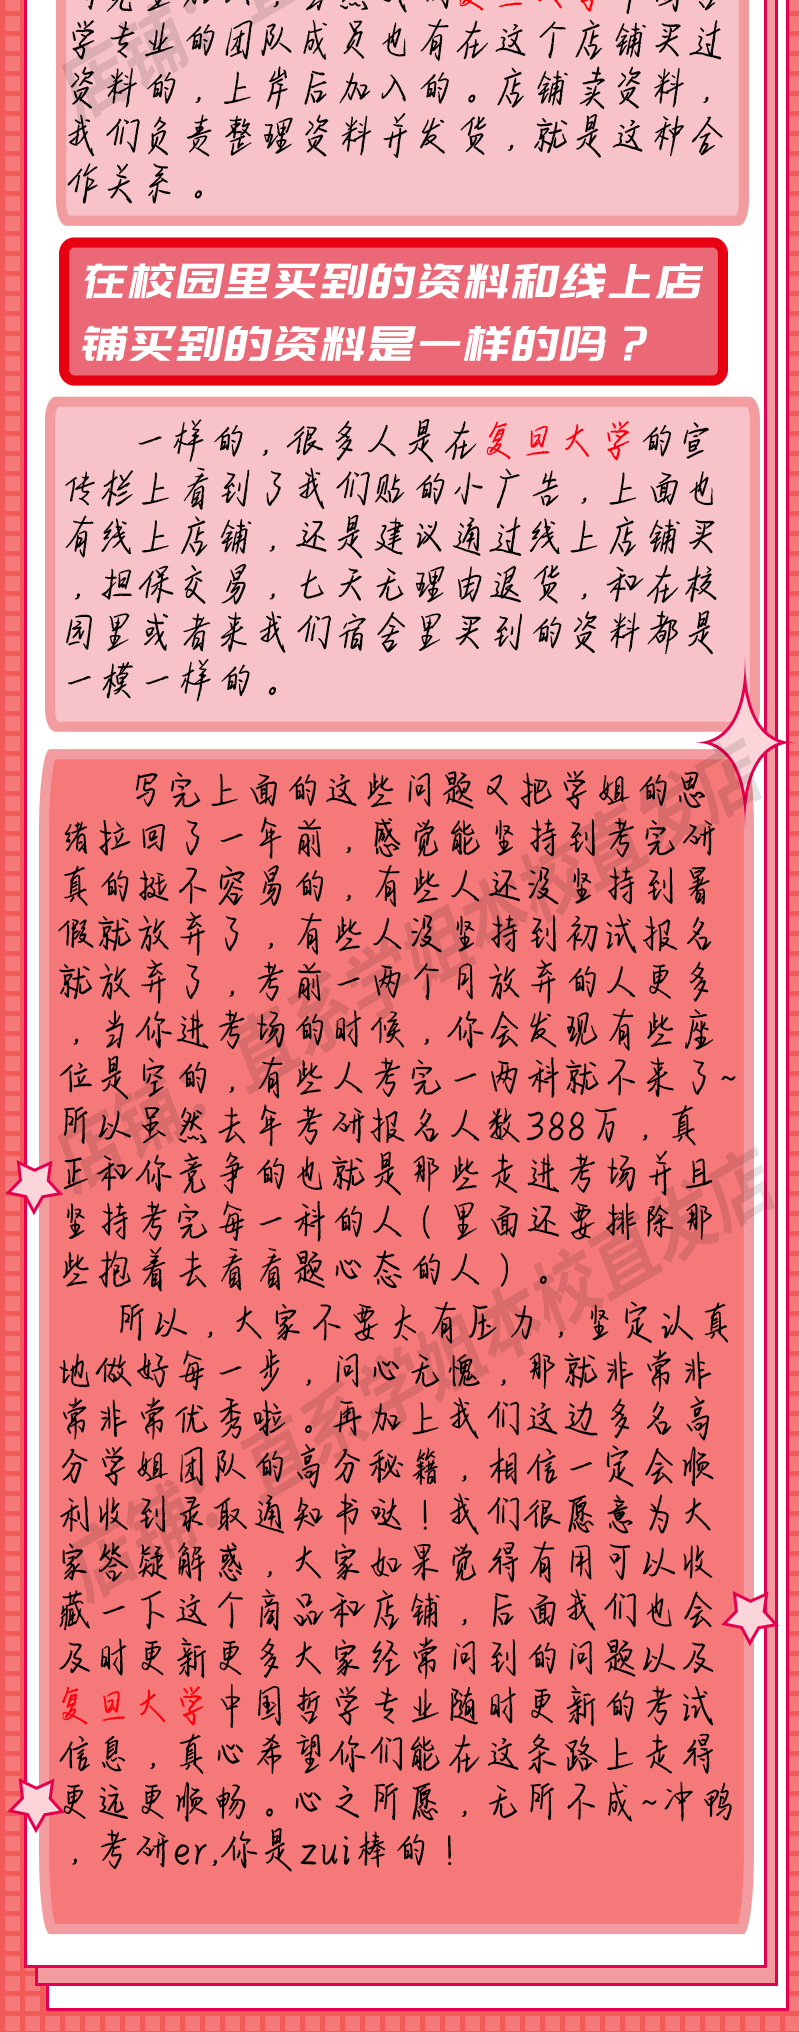 复旦大学
学专业的团队成员也有在这个店铺买过
资料的，上岸后加入的。店铺卖资料，
我们负责整理资料并发货，就是这种合
作关系。
在校园里买到的资料和线上店
铺买到的资料是一样的吗？
一样的，很多人是在复旦大学的宣
传栏上看到了我们贴的小广告，上面也
有线上店铺，还是建议通过线上店铺买
，担保交易，七天无理由退货，和在校
园里或者来我们宿舍里买到的资料都是
一模一样的。
写完上面的这些问题又把学姐的思
绪拉回了一年前，感觉能坚持到考完研
真的挺不容易的，有些人还没坚持到暑
假就放弃了，有些人没坚持到初试报名
就放弃了，考前一两个月放弃的人更多
，当你进考场的时候，你会发现有些座
位是空的，有些人考完一两科就不来了~
所以虽然去年考研报名人数388万，真
正和你竞争的也就是那些走进考场并且
坚持考完每一科的人（里面还要排除那
些抱着去看看题心态的人）。
所以，大家不要太有压力，坚定认真
地做好每一步，问心无愧，那就非常非
常非常优秀啦。再加上我们这边多名高
分学姐团队的高分秘籍，相信一定会顺
利收到录取通知书哒！我们很愿意为大
家答疑解惑，大家如果觉得有用可以收
藏一下这个商品和店铺，后面我们也会
及时更新更多大家经常问到的问题以及
复旦大学中国哲学专业随时更新的考试
信息，真心希望你们能在这条路上走得
更远更顺畅。心之所愿，无所不成~冲鸭
，考研er,你是zui棒的！
店铺：直系学姐本校直发店
店铺：直系学姐本校直发店